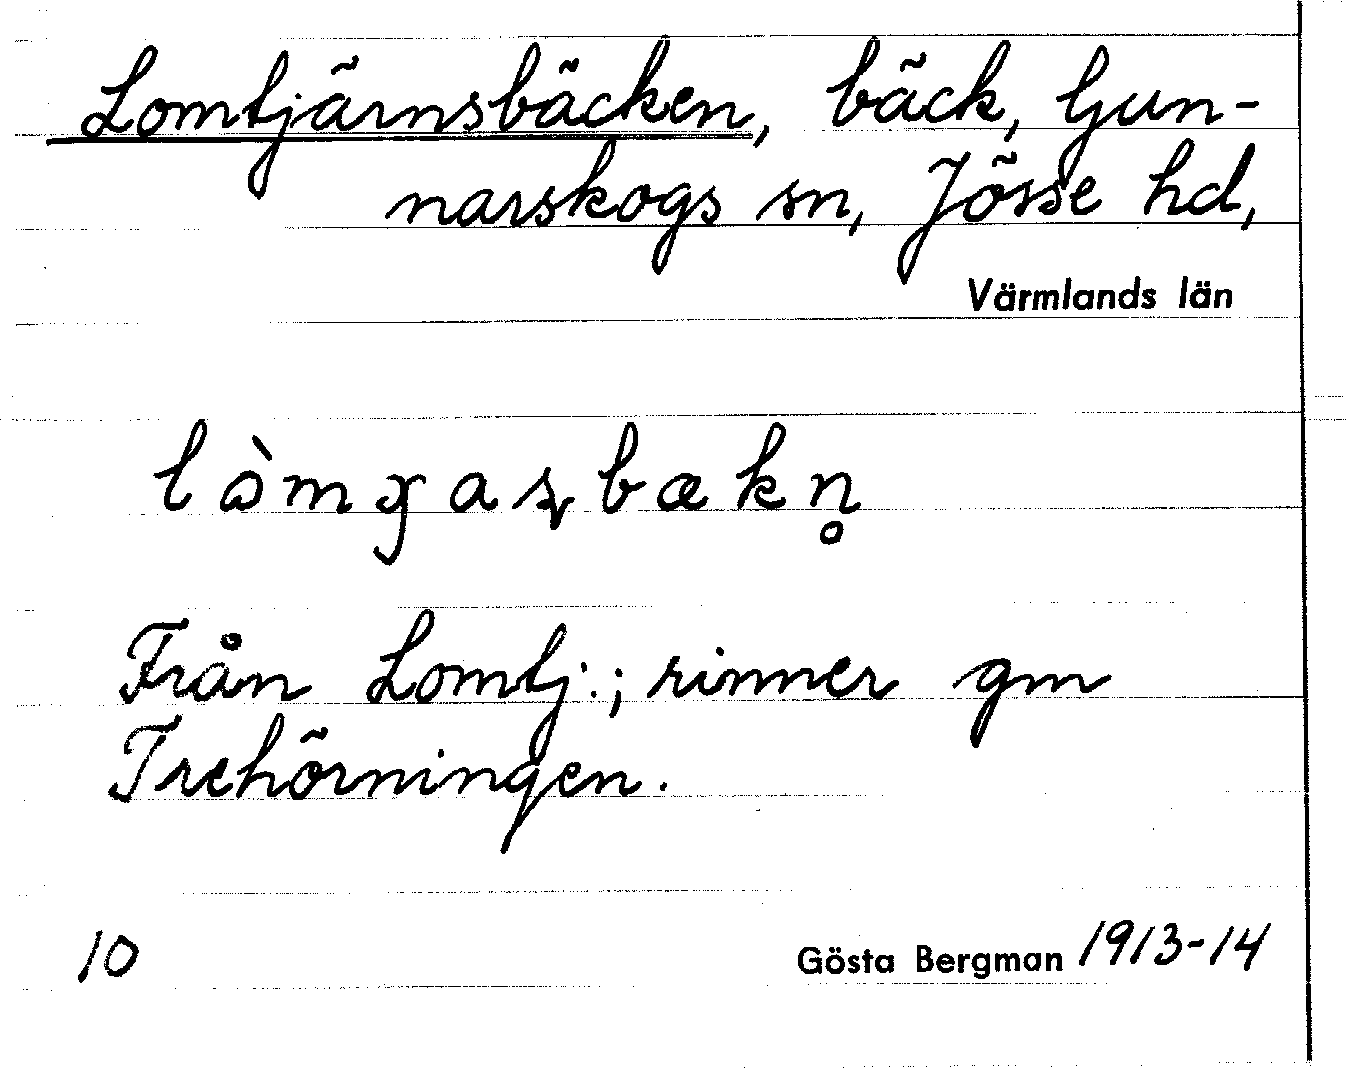 Lomtjärnsbäcken, bäck, Gun-
narskogs sn, Jösse hd,
Värmlands län
Från Lomtj.; rinner gm
Trehörningen.
10
Gösta Bergman 1913-14